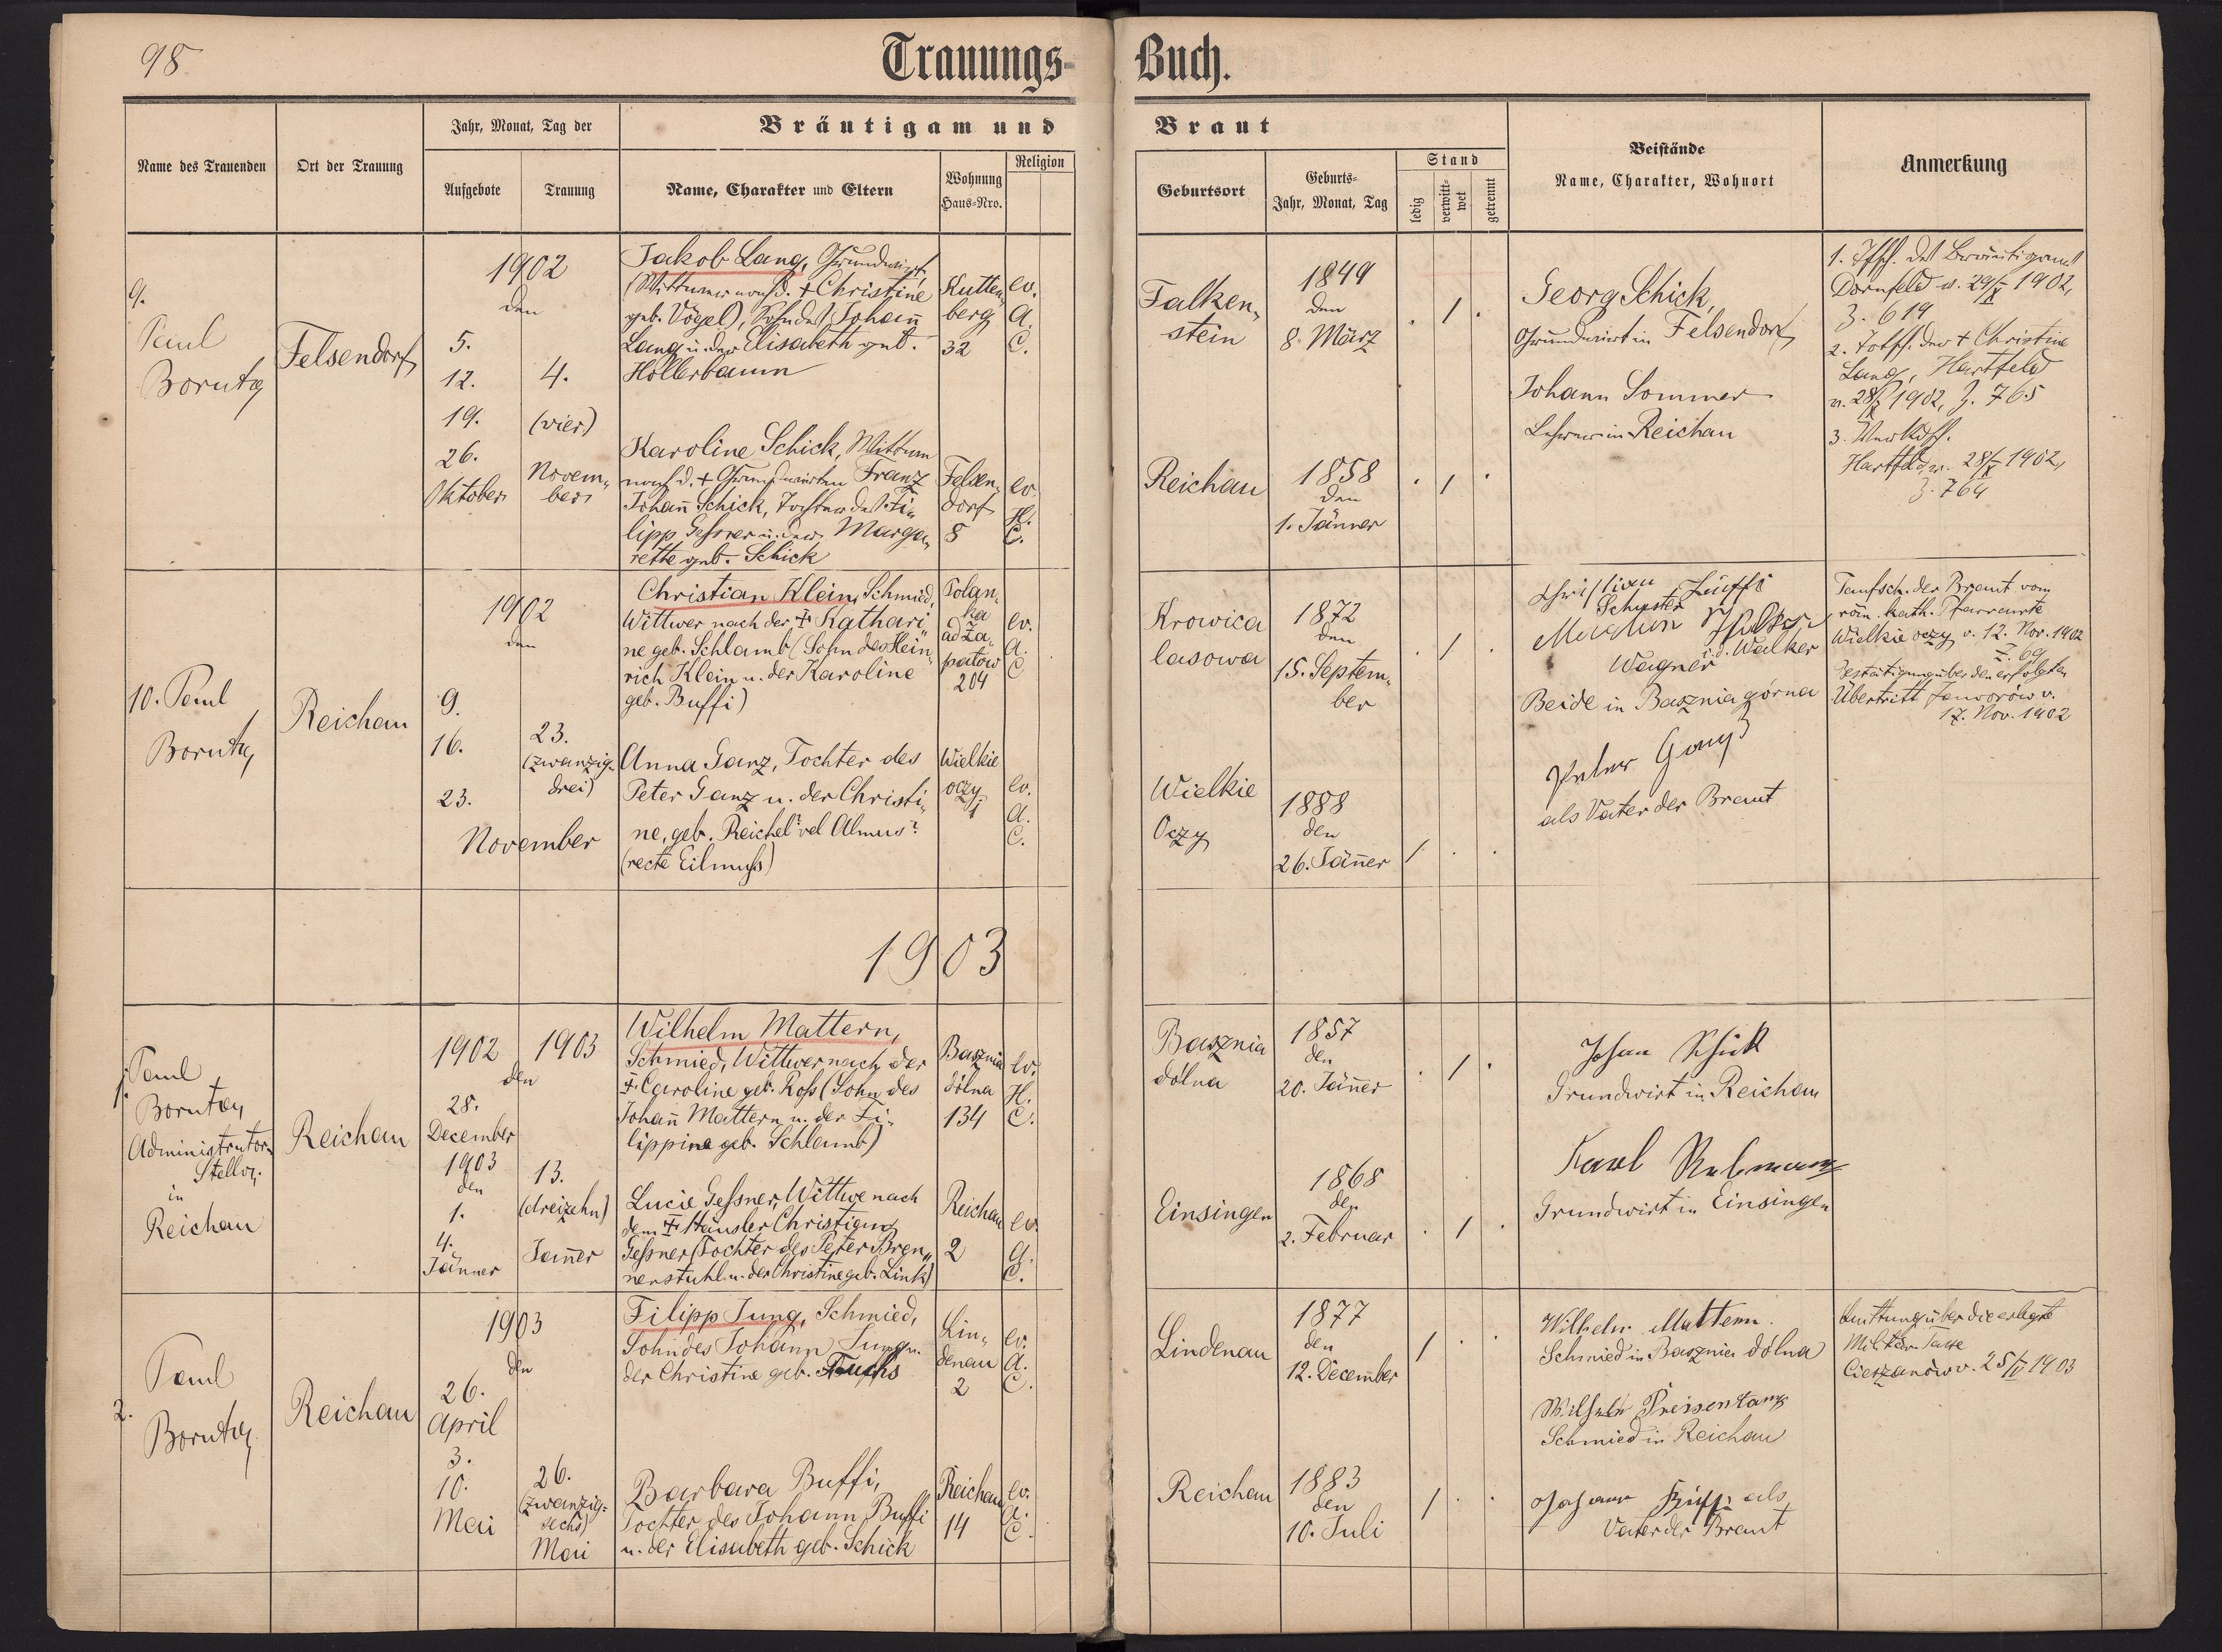 98.
Trauungs-Buch.
Name des Trauenden
Ort der Trauung
Jahr, Monat, Tag der
Aufgebote
Trauung
Bräutigam und Braut
Name, Charakter und Eltern
Wohnung
Haus-Nro.
Religion
Geburtsort
Geburts-
Jahr, Monat, Tag
Stand
ledig
verwitt-
wet
getrennt
Beistände
Name, Charakter, Wohnort
Anmerkung
9.
Paul
Boruta
Felsendorf
1902
den
5.
12.
19.
26.
Oktober
4.
(vier)
Novem„
ber
Jakob Lang, Grundwirt,
(Wittwer nach d. + Christine
geb. Vogel), Sohn des Johann
Lang u. der Elisabeth geb.
Hollerbaum
Kutten„
berg
32
ev.
A.
C.
Falken„
stein
1849
den
8. März
. 1 .
Karoline Schick, Wittwe
nach d. + Grundwirten Franz
Johann Schick, Tochter des Fi„
lipp Gessner u. der Marga„
rethe geb. Schick
Felsen„
dorf
8
ev.
H.
C.
Reichau
1858
den
1. Jänner
. 1 .
Georg Schick,
Grundwirt in Felsendorf
Johann Sommer
Lehrer in Reichau
1. Tfsch. des Bräutigams
Dornfeld v. 29/X 1902,
Z. 619
2. Totsch. der + Christine
Lang, Hartfeld
v. 28/X 1902, Z. 765
3. Verkdsch.
Hartfeld v. 28/X 1902,
Z. 764
10. Paul
Boruta
Reichau
1902
den
9.
16.
23.
November
23.
(zwanzig-
drei)
Christian Klein, Schmied,
Wittwer nach der + Kathari„
ne geb. Schlamb (Sohn des Hein„
rich Klein u. der Karoline
geb. Buffi)
Polan„
ka
ad Za„
patow
204
ev.
A.
C
Krowica
lasowa
1872
den
15. Septem„
ber
. 1 .
Anna Ganz, Tochter des
Peter Ganz u. der Christi„
ne, geb. Reichel? vel Almus?
(recte Eilmuss)
Wielkie
oczy
1
ev.
A.
C.
Wielkie
Oczy
1888
den
26. Jänner
1 . .
Schuster
i.d. Walker
Wagner
Beide in Basznia górna
Peter Ganz
als Vater der Braut
Taufsch. der Braut vom
röm. kath. Pfarramte
Wielkie oczy v. 12. Nov. 1902
Z. 69
Bestätigung über den erfolgten
Übertritt Jaworów v.
17. Nov. 1902
1903
1. Paul
Boruta
Administrator„
Stellv.
in
Reichau
Reichau
1902 1903
den
28.
December
1903
den
1.
4.
Jänner
13.
(dreizehn)
Jänner
Wilhelm Mattern,
Schmied, Wittwer nach der
+ Caroline geb. Ross (Sohn des
Johann Mattern u. der Fi„
lippine geb. Schlamb)
Basznia
dólna
134
ev.
H.
C.
Basznia
dólna
1857
den
20. Jänner
. 1 .
Lucie Gessner, Wittwe nach
dem + Häusler Christian
Gessner (Tochter des Peter Bren„
nerstuhl u. der Christine geb. Link)
Reichau
2
ev.
A.
C.
Einsingen
1868
den
2. Februar
. 1 .
Johan Schick
Grundwirt in Reichau
Karl
Grundwirt in Einsingen
2.
Paul
Boruta
Reichau
1903
den
26.
April
3.
10.
Mai
26.
(zwanzig-
sechs)
Mai
Filipp Jung, Schmied,
Sohn des Johann Jung u.
der Christine geb. Fuchs
Lin„
denau
2
ev.
A.
C.
Lindenau
1877
den
12. December
1 . .
Barbara Buffi,
Tochter des Johann Buffi
u. der Elisabeth geb. Schick
Reichau
14
ev.
A.
C.
Reichau
1883
den
10. Juli
1 . .
Wilhelm Mattern
Schmied in Basznia dólna
Wilhelm Preisentanz
Schmied in Reichau
Johann Buffi als
Vater der Braut
Quittung über die erlegte
Militär-Taxe
Cieszanów v. 25/IV 1903